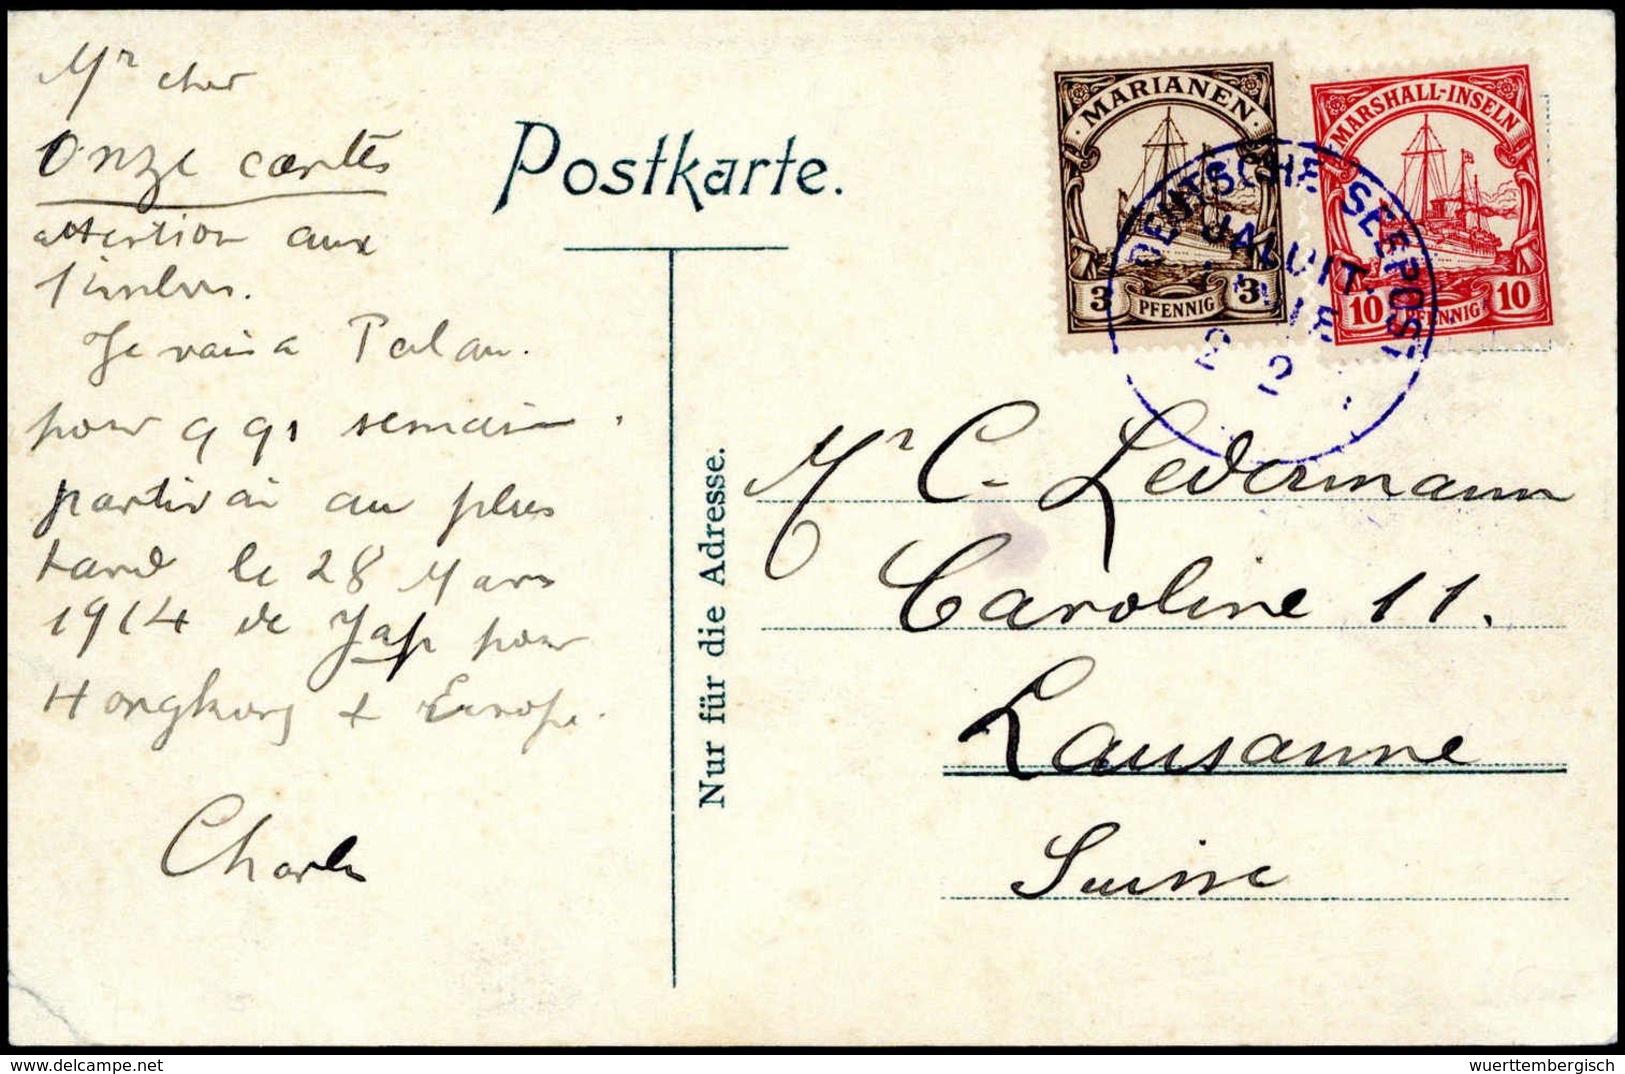 Mr cher
Onze cartes
attention aux
timbres.
Je vais a Palau.
pour q q1 semain.
partirai au plus
tard le 28 Mars
1914 de Yap pour
Hongkong + Europe.
Charles
Postkarte.
Nur für die Adresse.
MARIANEN
3 PFENNIG 3
MARSHALL-INSELN
10 PFENNIG 10
DEUTSCHE SEEPOST
JALUIT
LINIE
Mr C. Ledermann
Caroline 11.
Lausanne
Suisse
Picture from delcampe.net
wuerttembergisch